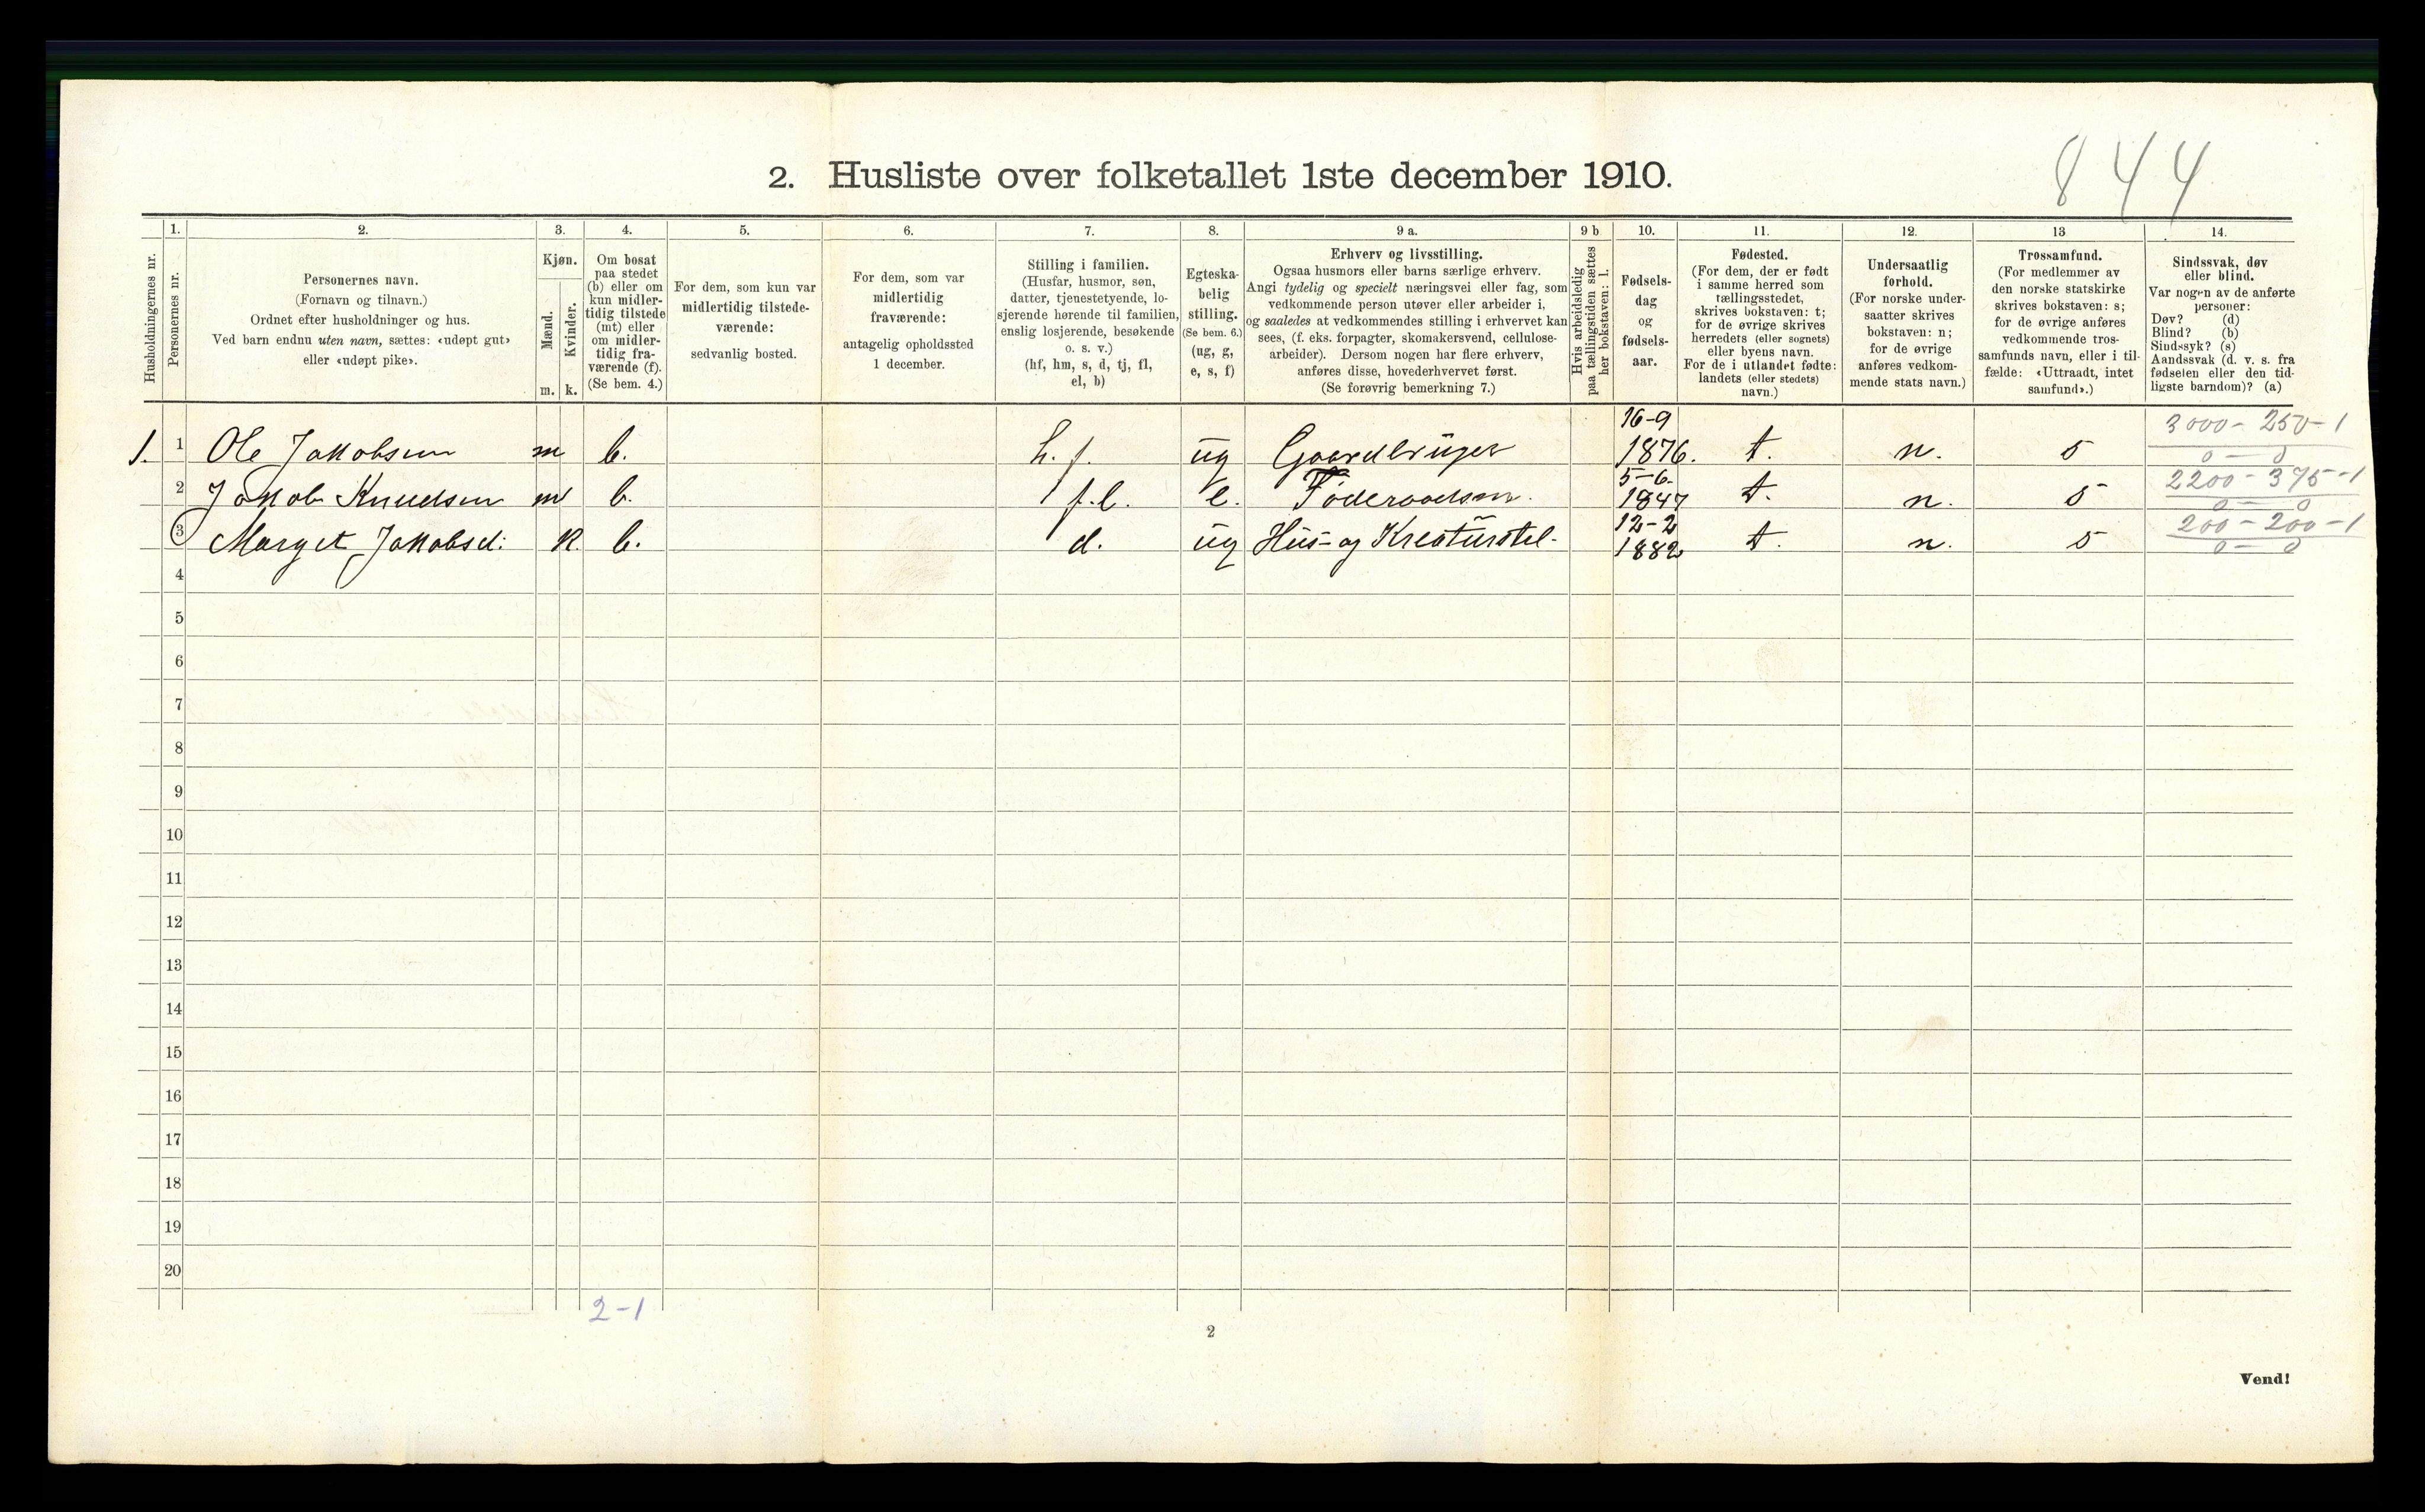 844
2. Husliste over folketallet 1ste december 1910.
Husholdningernes nr.
1.
Personernes nr.
2.
Personernes navn.
(Fornavn og tilnavn.)
Ordnet efter husholdninger og hus.
Ved barn endnu uten navn, sættes: «udøpt gut»
eller «udøpt pike».
3.
Kjøn.
Mænd.
m.
Kvinder.
k.
4.
Om bosat
paa stedet
(b) eller om
kun midler-
tidig tilstede
(mt) eller
om midler-
tidig fra-
værende (f).
(Se bem. 4.)
5.
For dem, som kun var
midlertidig tilstede-
værende:
sedvanlig bosted.
6.
For dem, som var
midlertidig
fraværende:
antagelig opholdssted
1 december.
7.
Stilling i familien.
(Husfar, husmor, søn,
datter, tjenestetyende, lo-
sjerende hørende til familien,
enslig losjerende, besøkende
o. s. v.)
(hf, hm, s, d, tj, fl,
el, b)
8.
Egteska-
belig
stilling.
(Se bem. 6.)
(ug, g,
e, s, f)
9 a.
Erhverv og livsstilling.
Ogsaa husmors eller barns særlige erhverv.
Angi tydelig og specielt næringsvei eller fag, som
vedkommende person utøver eller arbeider i,
og saaledes at vedkommendes stilling i erhvervet kan
sees, (f. eks. forpagter, skomakersvend, cellulose-
arbeider). Dersom nogen har flere erhverv,
anføres disse, hovederhvervet først.
(Se forøvrig bemerkning 7.)
9 b
Hvis arbeidsledig
paa tællingstiden sættes
her bokstaven: l.
10.
Fødsels-
dag
og
fødsels-
aar.
11.
Fødested.
(For dem, der er født
i samme herred som
tællingsstedet,
skrives bokstaven: t;
for de øvrige skrives
herredets (eller sognets)
eller byens navn.
For de i utlandet fødte:
landets (eller stedets)
navn.)
12.
Undersaatlig
forhold.
(For norske under-
saatter skrives
bokstaven: n;
for de øvrige
anføres vedkom-
mende stats navn.)
13
Trossamfund.
(For medlemmer av
den norske statskirke
skrives bokstaven: s;
for de øvrige anføres
vedkommende tros-
samfunds navn, eller i til-
fælde: «Uttraadt, intet
samfund».)
14.
Sindssvak, døv
eller blind.
Var nogen av de anførte
personer:
Døv? (d)
Blind? (b)
Sindssyk? (s)
Aandssvak (d. v. s. fra
fødselen eller den tid-
ligste barndom)? (a)
1. 1 Ole Jakobsen m b. h.f. ug Gaardbruger 16-9 1876. t. n. s 3000-250-1 0-0
2 Jakob Knudsen m b. f.l. e. Føderaadsm. 5-6- 1847 t. n. s 2200-375-1 0-0
3 Marget Jakobsd: k. b. d. ug Hus- og Kreaturstel- 12-2 1882 t. n. s 200-200-1 0-0
4
5
6
7
8
9
10
11
12
13
14
15
16
17
18
19
20
2-1
2
Vend!